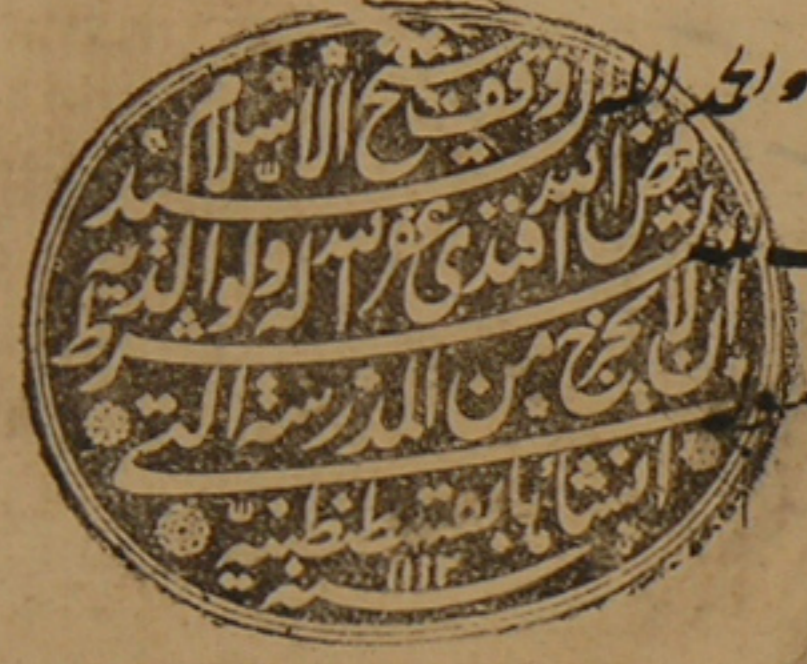 والحمد لله
وقف شيخ الاسلام السيد
فيض الله افندى غفر الله له ولوالديه
بشرط ان لا يخرج من المدرسة التى
انشأها بقسطنطينيّة
سنة ١١١٢